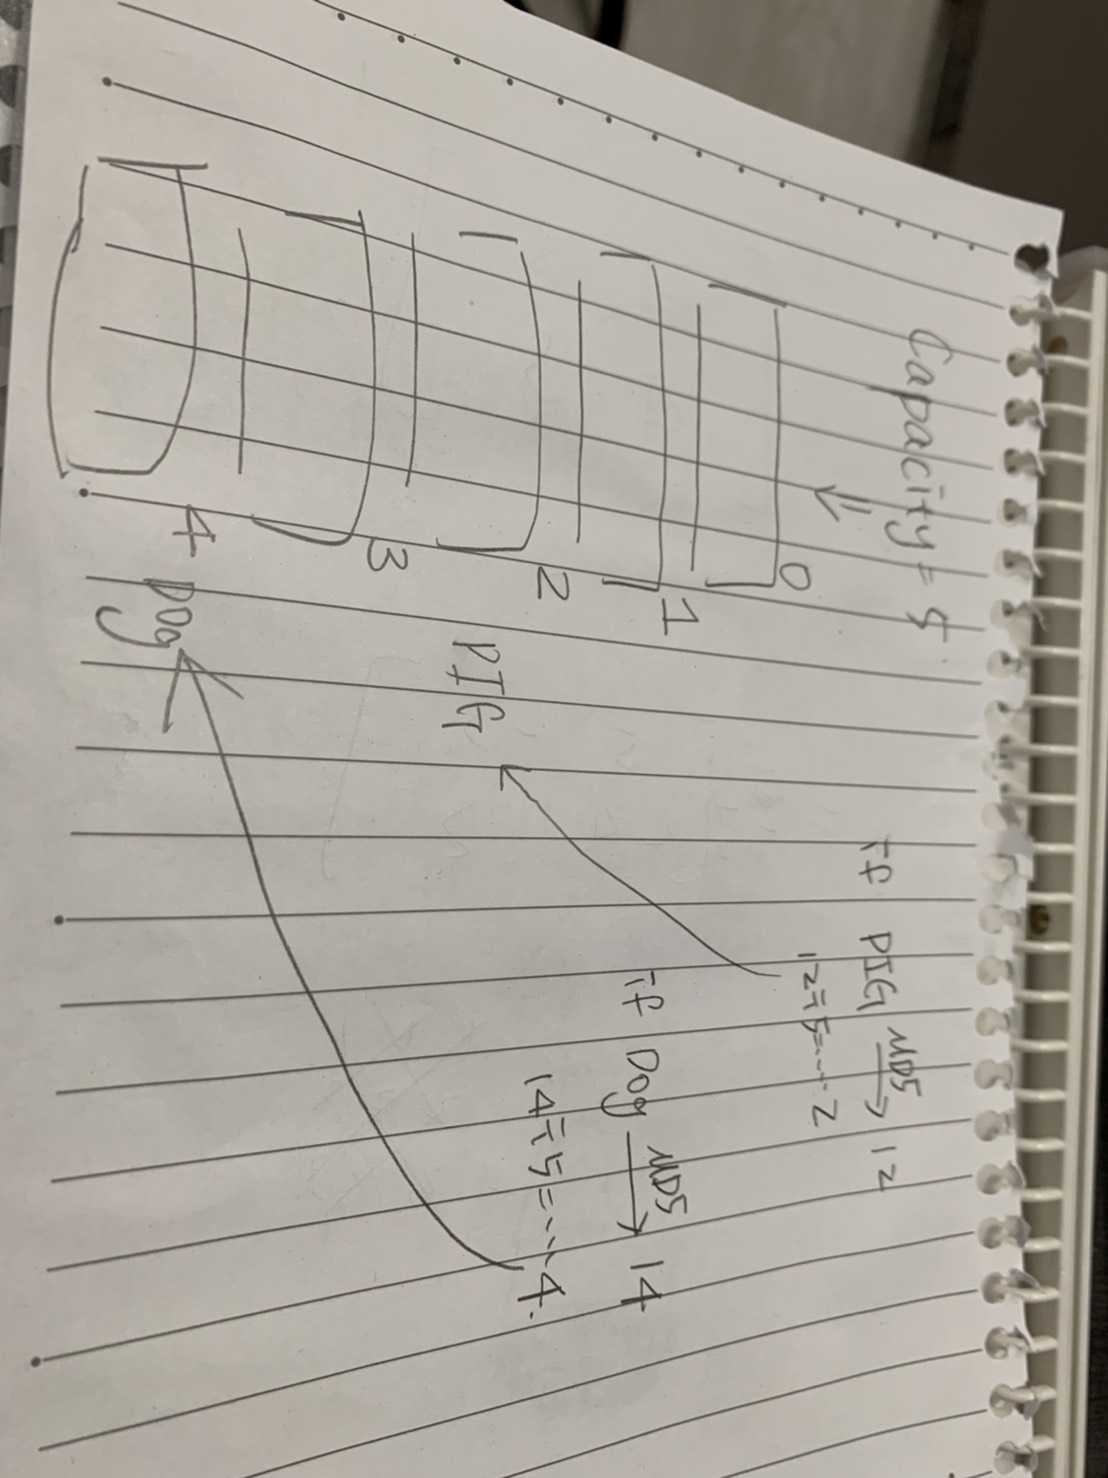 Capacity = 5
0
1
2 PIG
3
4 Dog
if PIG MD5 → 12
12÷5=....2
if Dog MD5 → 14
14÷5=....4.